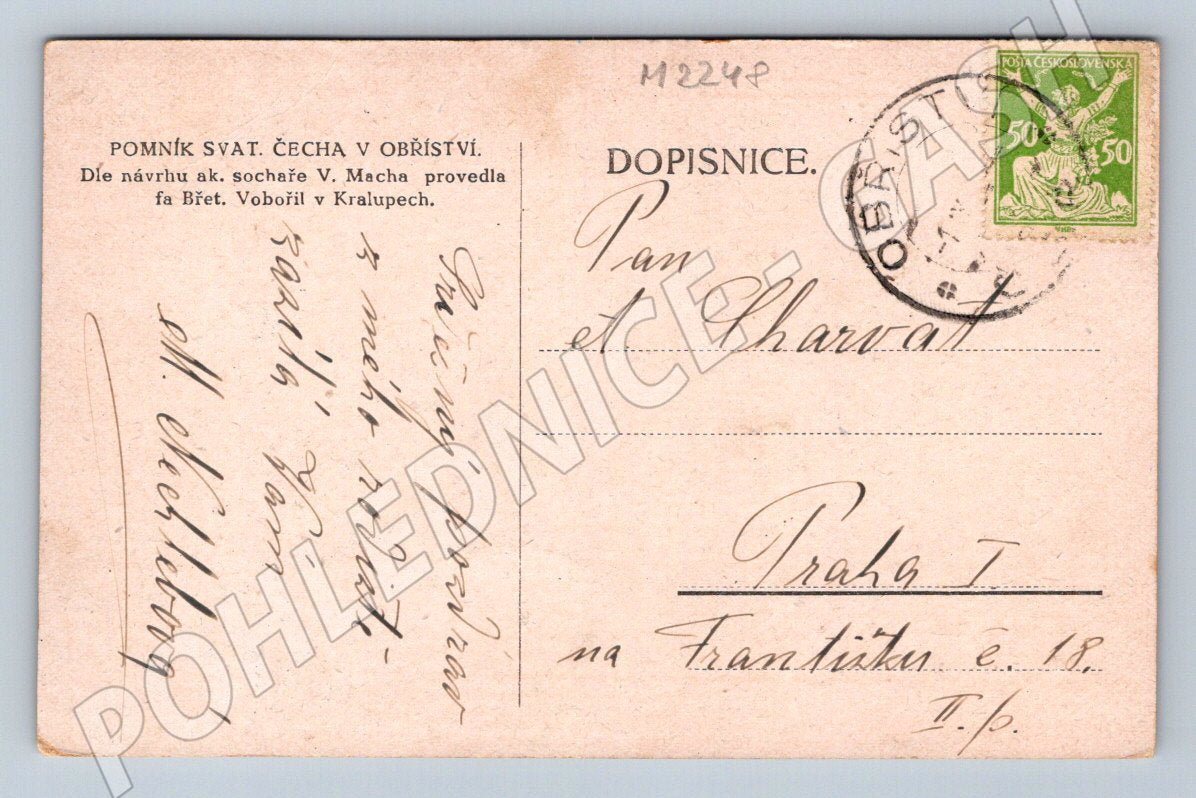 M2248
POMNÍK SVAT. ČECHA V OBŘÍSTVÍ.
Dle návrhu ak. sochaře V. Macha provedla
fa Břet. Vobořil v Kralupech.
DOPISNICE.
POŠTA ČESKOSLOVENSKÁ
50 50
OBŘÍSTV
Srdečný pozdrav
z mého
zasílá Vám
M.
Pan
Charvat
Praha I
na Františku č. 18.
II. p.
POHLEDNICE - CASH